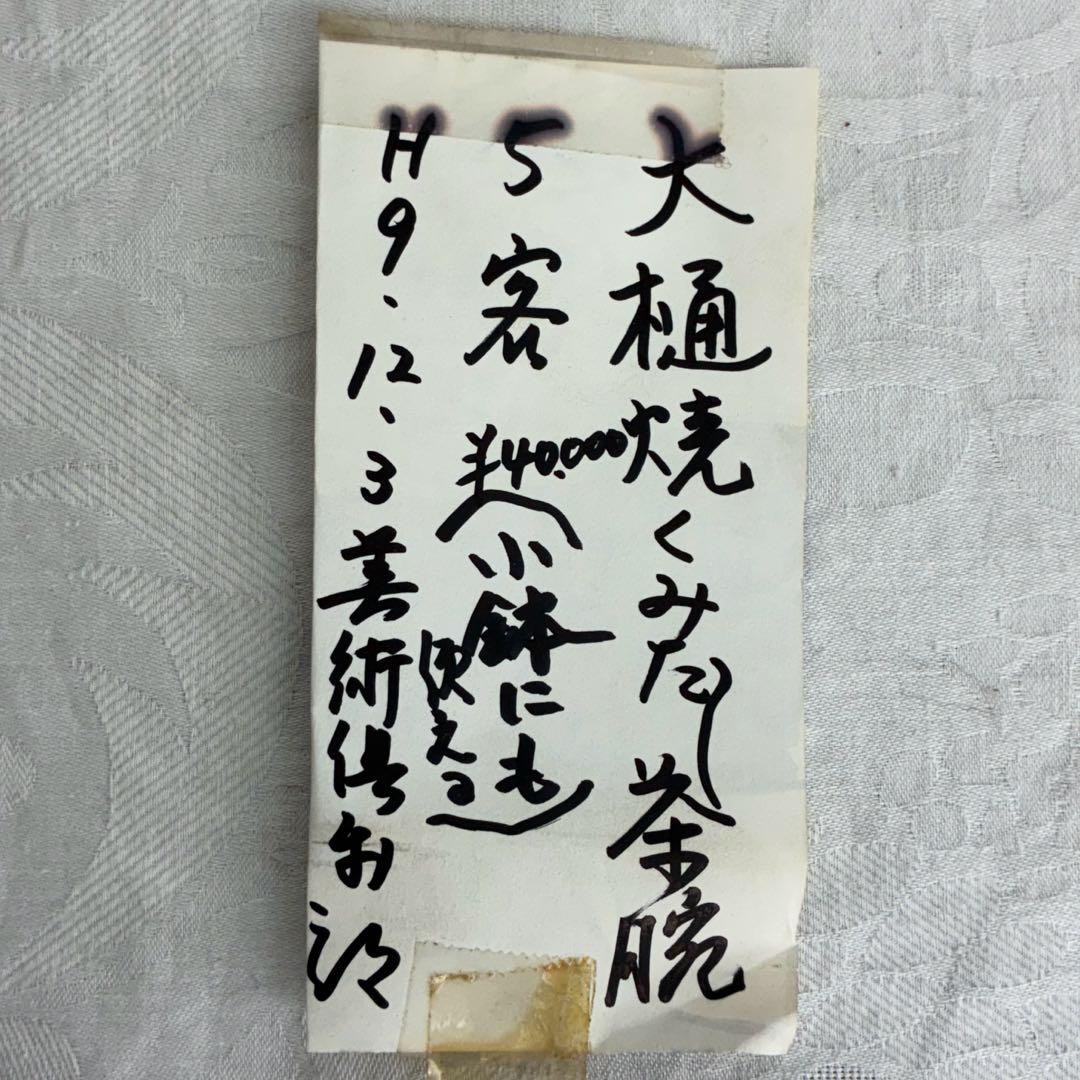 大樋焼くみだし茶腕
5客 ¥40,000
(小鉢にも
使える)
H9.12.3美術倶楽部